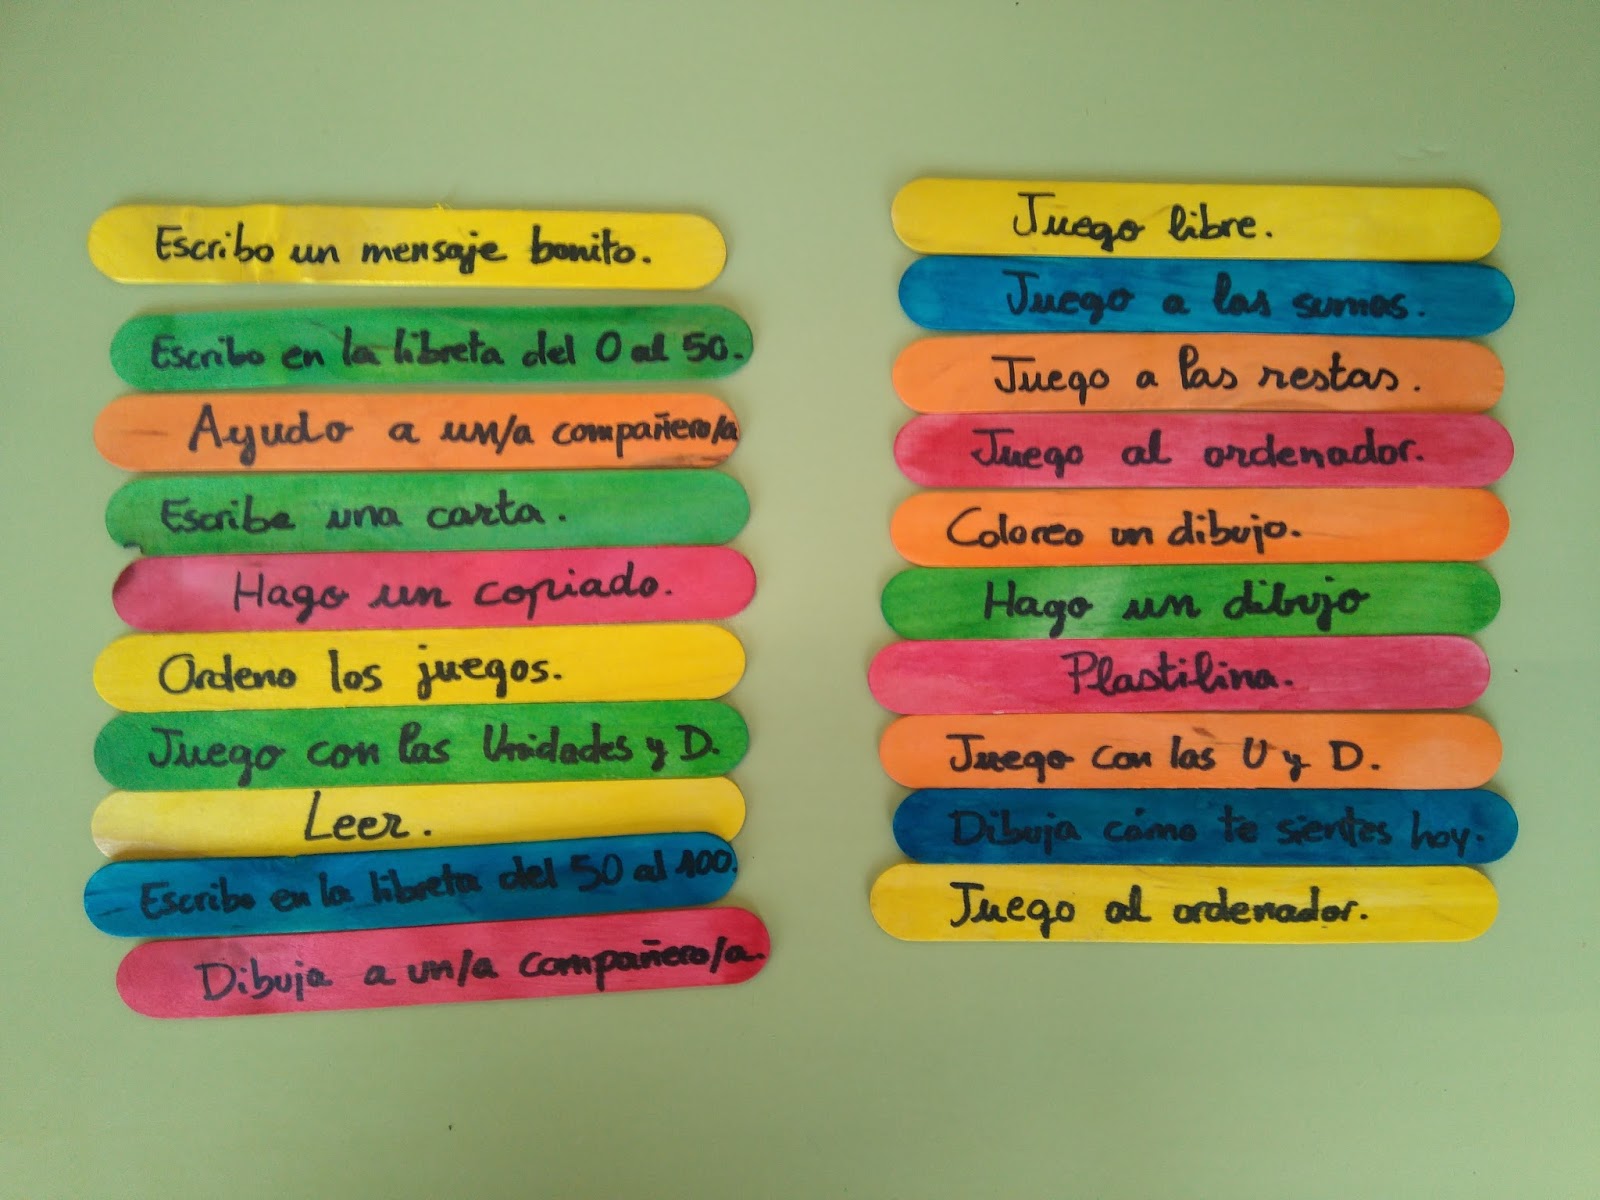 Escribo un mensaje bonito.
Escribo en la libreta del 0 al 50.
Ayudo a un/a compañero/a
Escribe una carta.
Hago un copiado.
Ordeno los juegos.
Juego con las Unidades y D.
Leer.
Escribo en la libreta del 50 al 100.
Dibuja a un/a compañero/a.
Juego libre.
Juego a las sumas.
Juego a las restas.
Juego al ordenador.
Coloreo un dibujo.
Hago un dibujo
Plastilina.
Juego con las U y D.
Dibuja cómo te sientes hoy.
Juego al ordenador.